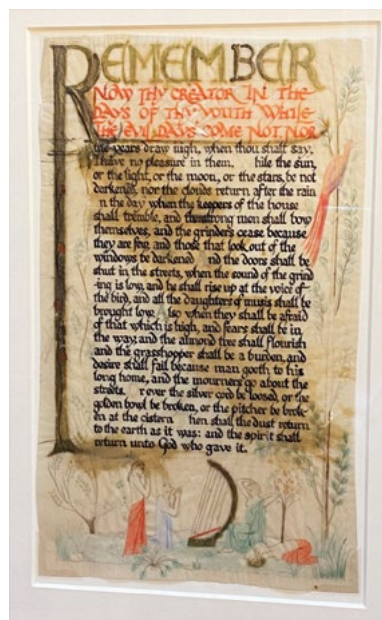 REMEMBER
NOW THY CREATOR IN THE
DAYS OF THY YOUTH WHILE
THE EVIL DAYS COME NOT, NOR
the years draw nigh, when thou shalt say,
I have no pleasure in them. hile the sun,
or the light, or the moon, or the stars, be not
darkened, nor the clouds return after the rain
n the day when the keepers of the house
shall tremble, and the strong men shall bow
themselves, and the grinders cease because
they are few, and those that look out of the
windows be darkened nd the doors shall be
shut in the streets, when the sound of the grind
-ing is low, and he shall rise up at the voice of
the bird, and all the daughters of music shall be
brought low. lso when they shall be afraid
of that which is high, and fears shall be in
the way, and the almond tree shall flourish
and the grasshopper shall be a burden, and
desire shall fail because man goeth to his
long home, and the mourners go about the
streets. r ever the silver cord be loosed, or the
golden bowl be broken, or the pitcher be brok-
en at the cistern hen shall the dust return
to the earth as it was: and the spirit shall
return unto God who gave it.